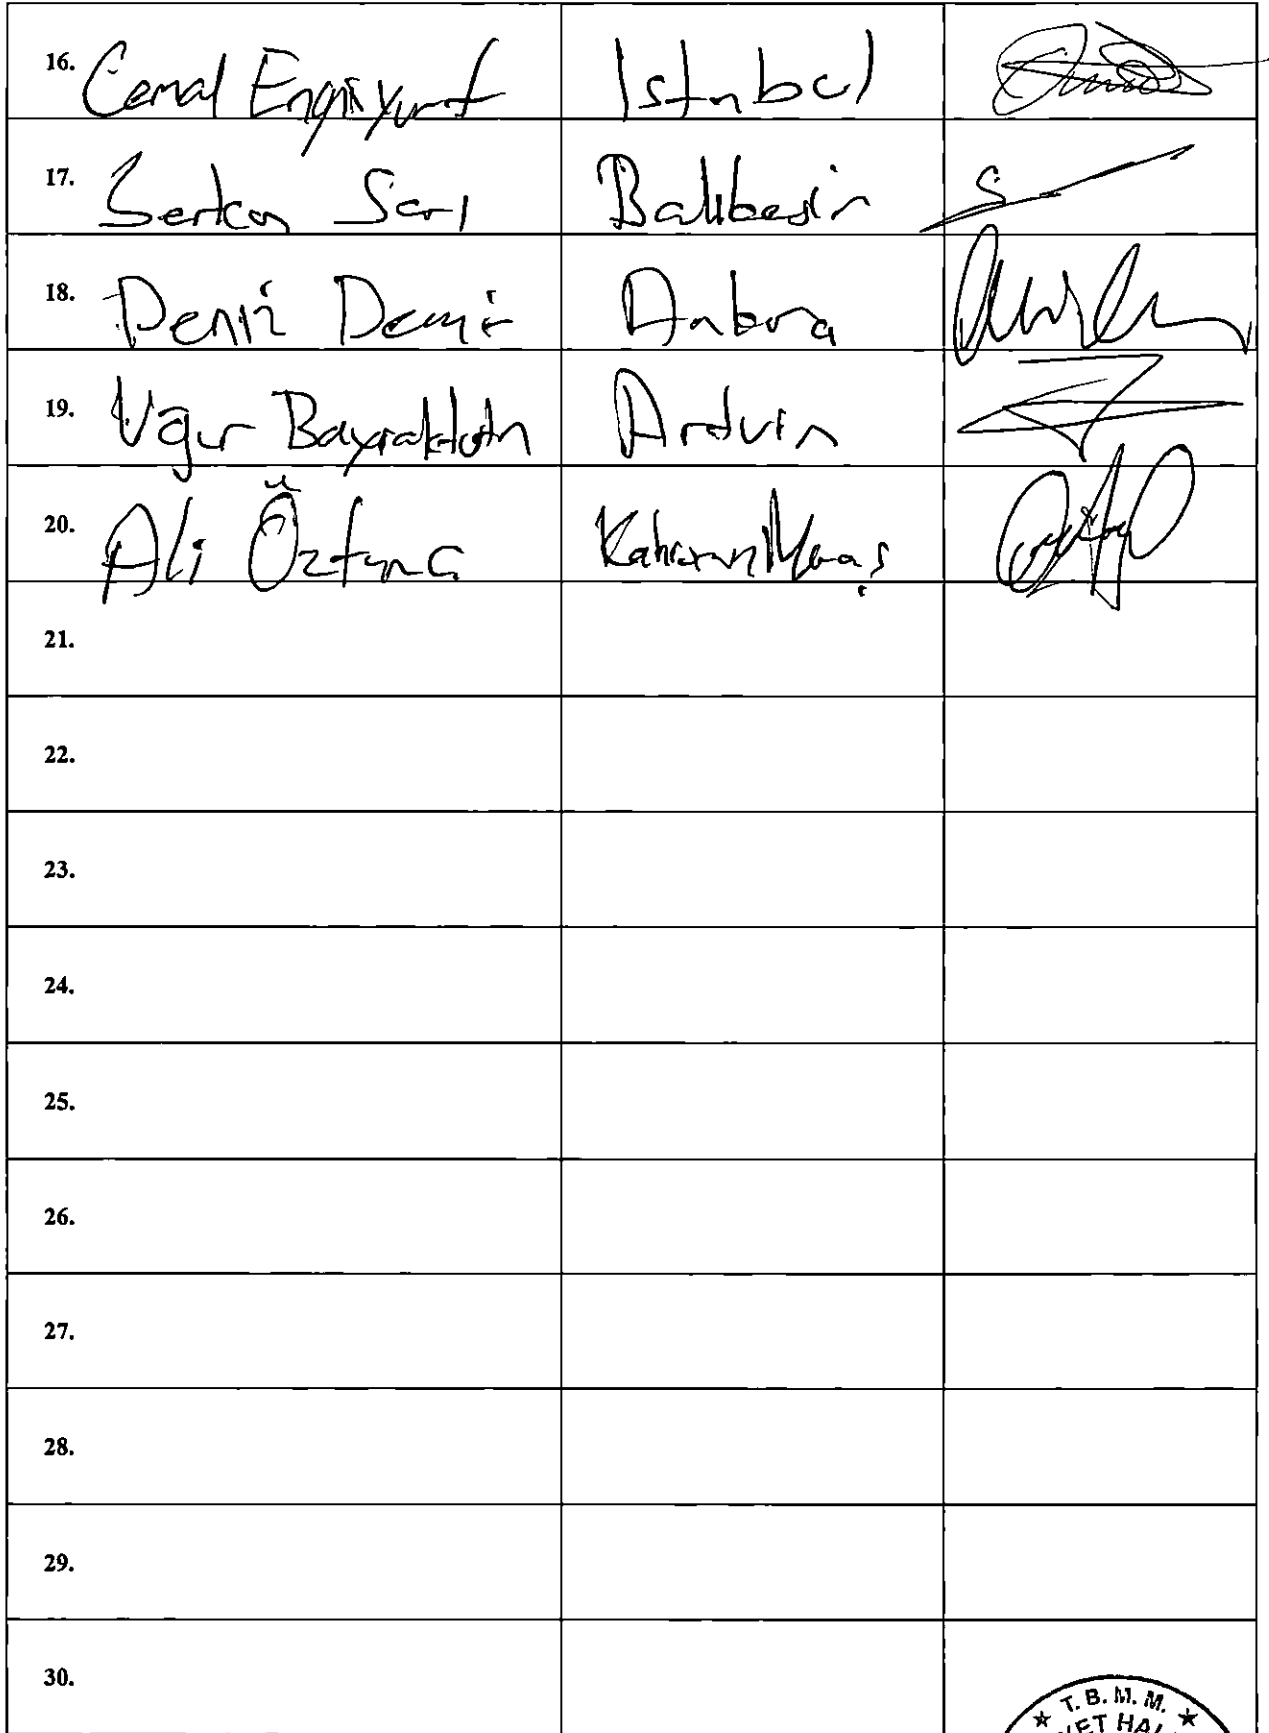 16. Cemal Enginyurt Istnbul
17. Serkan Sarı Balıkesir
18. Deniz Demir Ankara
19. Uğur Bayraktutan Artvin
20. Ali Öztunç Kahramanmaraş
21.
22.
23.
24.
25.
26.
27.
28.
29.
30.
T. B. M. M.